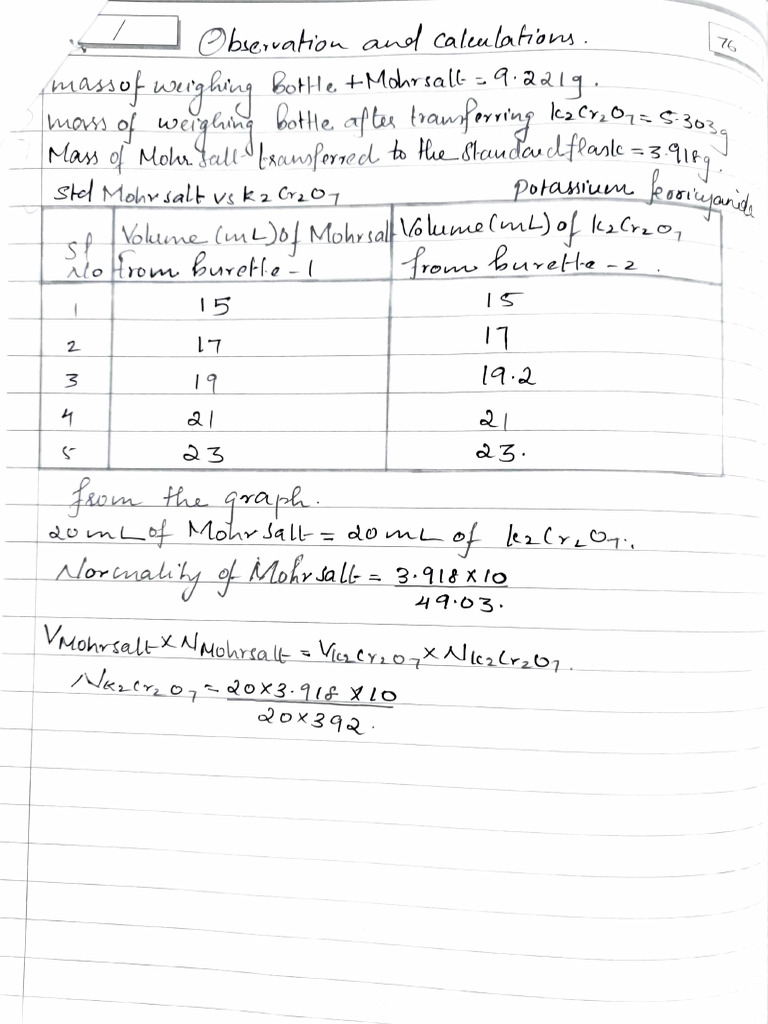 1
Observation and calculations.
76
mass of weighing Bottle + Mohrsalt = 9.221g.
mass of weighing bottle after transferring K2Cr2O7 = 5.303g
Mass of Mohr Salt transferred to the Standard flask = 3.918g.
Std Mohrsalt vs K2Cr2O7 potassium ferricyanide
Sl No Volume (mL) of Mohrsalt from burette - 1 Volume (mL) of K2Cr2O7 from burette - 2.
1 15 15
2 17 17
3 19 19.2
4 21 21
5 23 23.
from the graph.
20 mL of Mohr Salt = 20 mL of K2Cr2O7.
Normality of Mohrsalt = 3.918 x 10
49.03.
VMohrsalt x NMohrsalt = VK2Cr2O7 x NK2Cr2O7.
NK2Cr2O7 = 20 x 3.918 x 10
20 x 392.